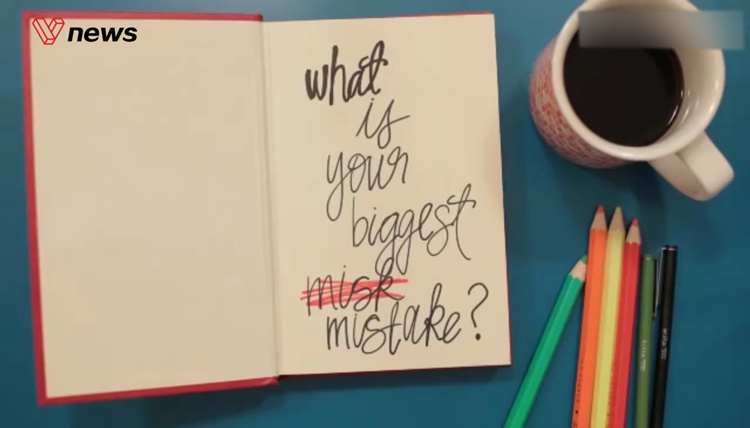 news
what
is
your
biggest
misk
mistake?